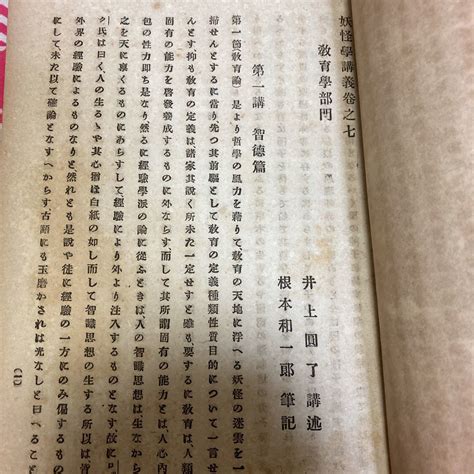 妖怪學講義卷之七
敎育學部門
井上圓了 講述
根本和一郎 筆記
第一講 智德篇
第一節(敎育論) 是より哲學の風力を藉りて、敎育の天地に浮へる妖怪の迷雲を一
掃せんとするに當り先つ其前驅として敎育の定義種類性質目的につきて一言せ
んとす抑も敎育の定義は諸家其說く所未た一定せすと雖も要するに敎育は、人類
固有の能力を啓發養成するものに外ならす、而して其所謂固有の能力とは人心內
包の性力卽ち是なり然るに經驗學派の論に從ふときは、人の智識思想は生なから
之を天に稟くるものにあらすして經驗により外より注入するものとなす故に「ロ
ック」氏は曰く人の生るゝや其心宛ほ白紙の如し而して智識思想の生する所以は皆
外界の經驗によるものなりと然れとも是說や徒に經驗の一方にのみ偏するもの
にして、未た以て確論となすへからす古語にも玉磨かされは光なしと曰へること
(一)